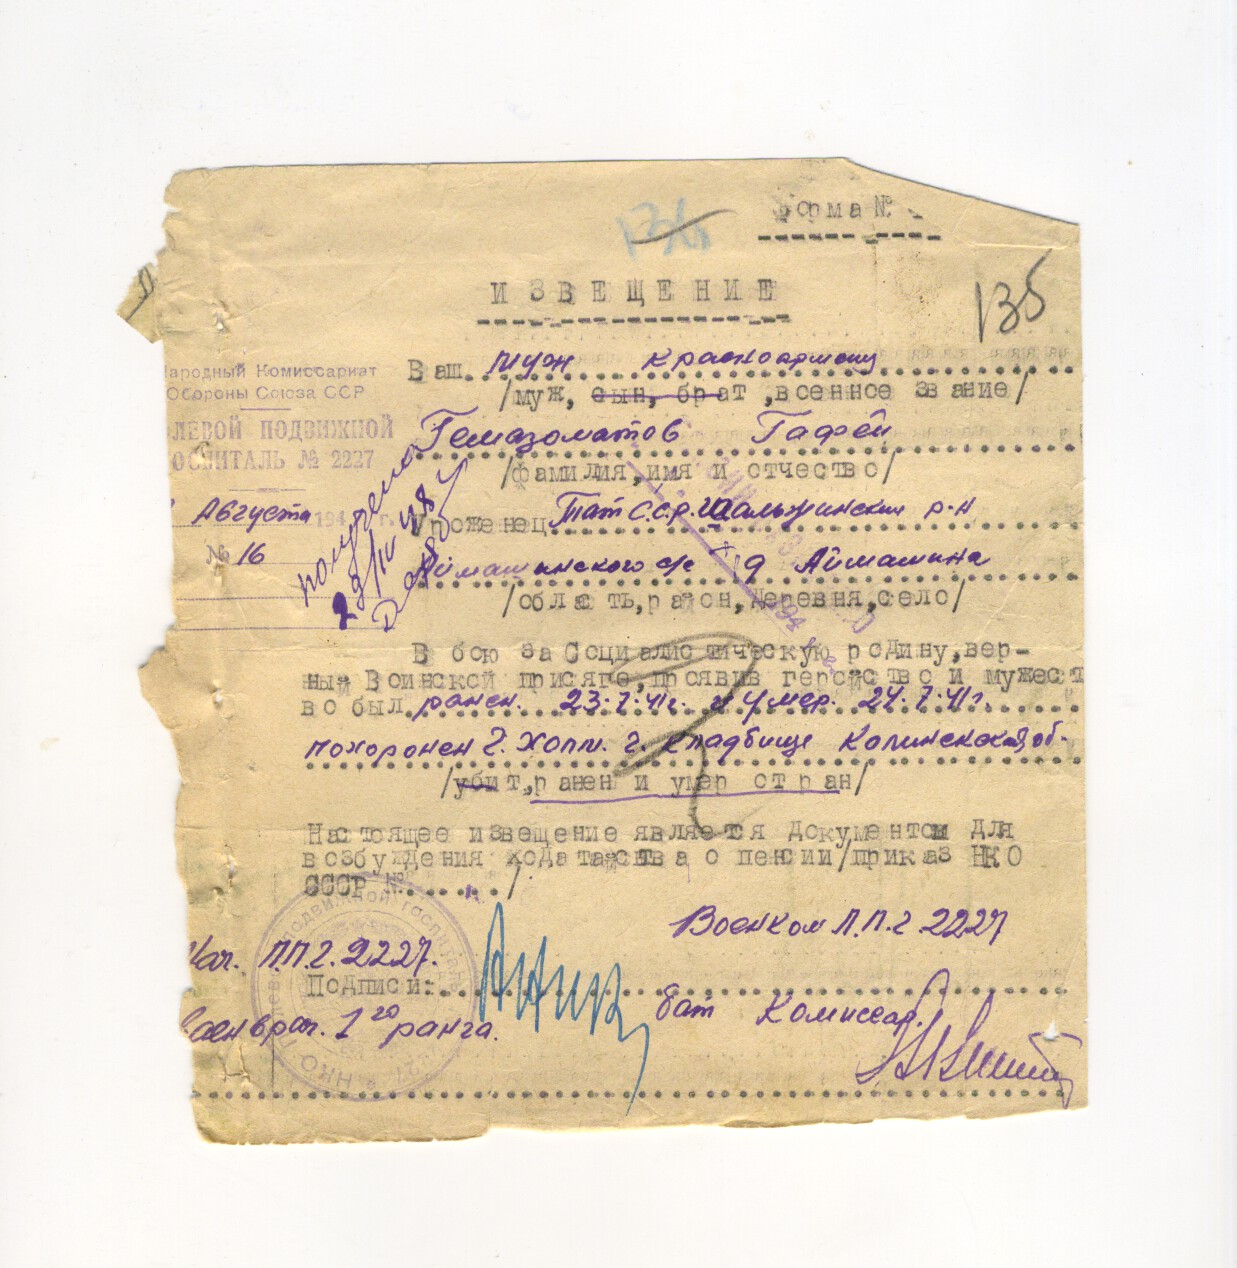 136
Форма №
ИЗВЕЩЕНИЕ
135
Народный Комиссариат
Обороны Союза ССР
ПОЛЕВОЙ ПОДВИЖНОЙ
ГОСПИТАЛЬ № 2227
Августа 194 г.
№ 16
получено
23/IV 48
Ваш муж красноармеец
/муж, сын, брат, военное звание/
Гемазоматов Гафей
/фамилия, имя и отчество/
Уроженец Тат С.С.Р. р-н
с/с д Аймашина
/область, район, деревня, село/
В бою за Социалистическую родину, вер-
ный Воинской присяге, проявив геройство и мужест
во был ранен. 23.7.41г. и умер. 24.7.41г.
похоронен г. Холм. г. кладбище Калининской об-
/убит, ранен и умер от ран/
Настоящее извещение является документом для
возбуждения ходатайства о пенсии/приказ НКО
СССР №....../.
Военком П.П.Г. 2227
Нач. П.П.Г. 2227.
Подписи:
бат Комиссар.
Военврач. 1го ранга.